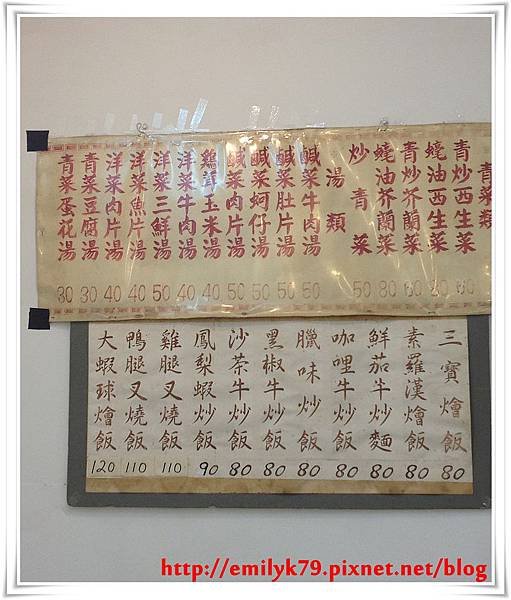 青菜類
青炒西生菜 60
蠔油西生菜 60
青炒芥蘭菜 60
蠔油芥蘭菜 80
炒青菜 50
湯類
鹹菜牛肉湯 50
鹹菜肚片湯 50
鹹菜蚵仔湯 50
鹹菜肉片湯 50
鷄茸玉米湯 40
洋菜牛肉湯 40
洋菜三鮮湯 50
洋菜魚片湯 40
洋菜肉片湯 40
青菜豆腐湯 30
青菜蛋花湯 30
三寶燴飯 80
素羅漢燴飯 80
鮮茄牛炒麵 80
咖哩牛炒飯 80
臘味炒飯 80
黑椒牛炒飯 80
沙茶牛炒飯 80
鳳梨蝦炒飯 90
雞腿叉燒飯 110
鴨腿叉燒飯 110
大蝦球燴飯 120
http://emilyk79.pixnet.net/blog